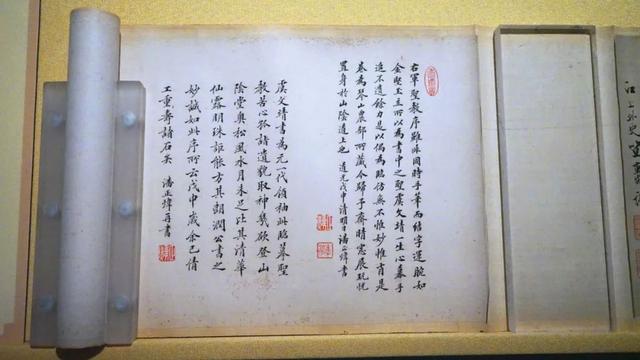 右軍聖教序雖非同時手筆而結字運腕如
金堅玉立所以為書中之聖虞文靖一生心摹手
追不遺餘力是以偶為臨仿無不惟妙惟肖是
卷為琴山農部所藏今歸予齋晴窓展玩恍
置身於山陰道上也 道光戊申清明日潘正煒書
虞文靖書為元一代領袖此臨摹聖
教苦心孤詣遺貌取神幾欲登山
陰堂奧松風水月未足比其清華
仙露明珠詎能方其朗潤公書之
妙誠如此序所云戊申歲余已倩
工重壽諸石矣 潘正煒再書